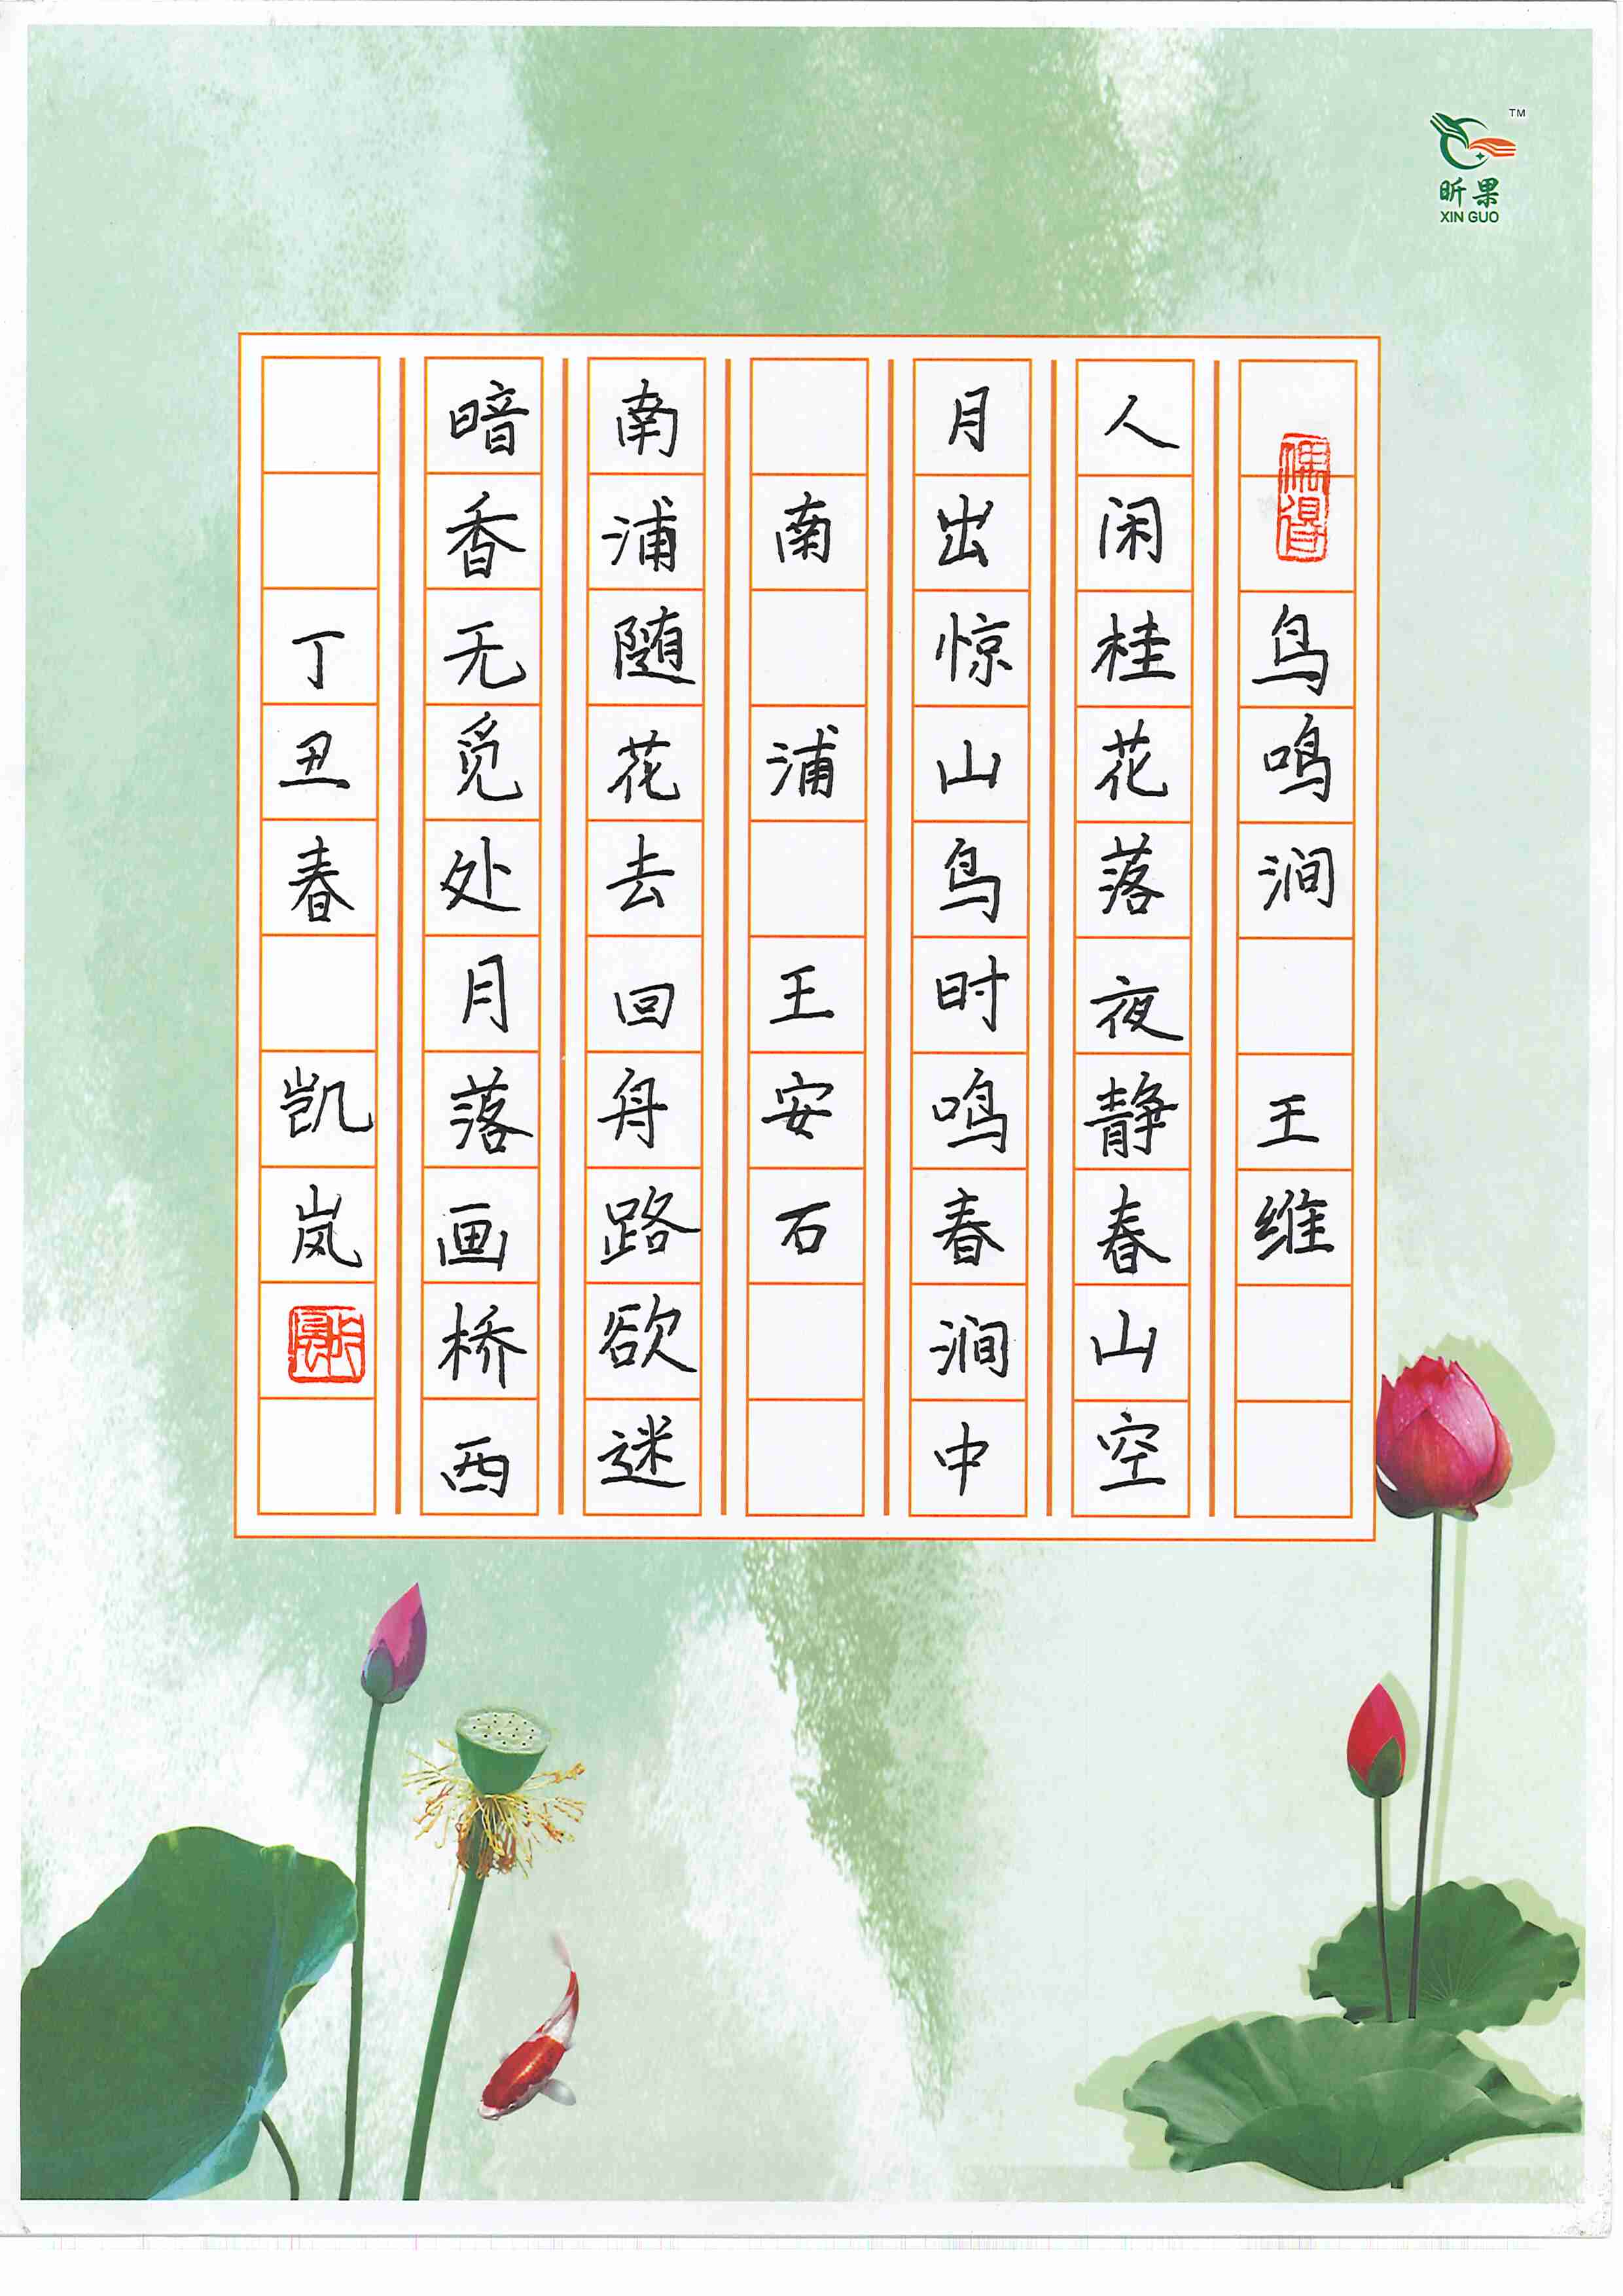 偶得
鸟鸣涧 王维
人闲桂花落夜静春山空
月出惊山鸟时鸣春涧中
南浦 王安石
南浦随花去回舟路欲迷
暗香无觅处月落画桥西
丁丑春 凯岚
昕果
XIN GUO
TM